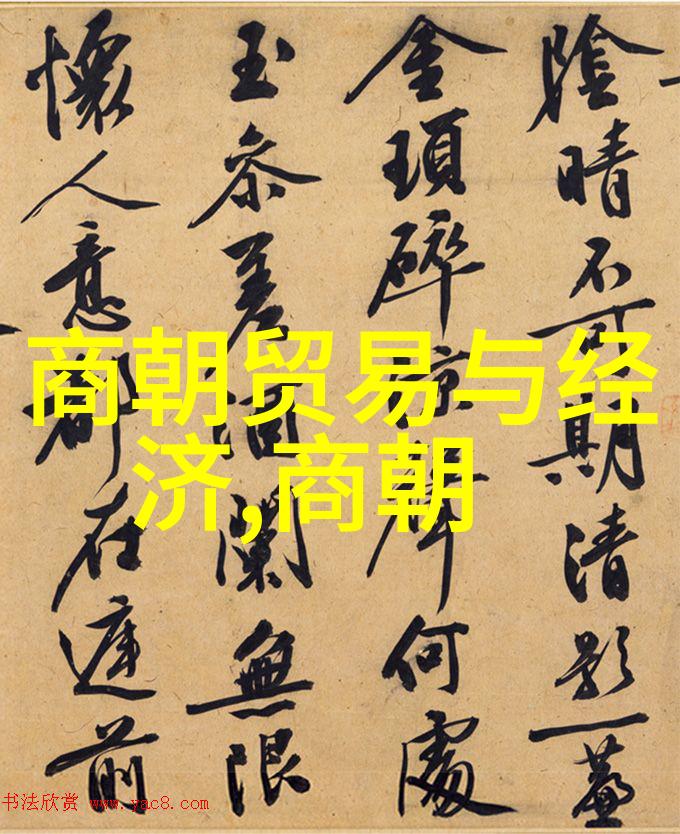 陰晴不可期清影一簾
金瑣碎涼聲何處
玉參差酒闌無限
懷人意都在庭前
商朝贸易与经
济,商朝
书法欣赏 www.yac8.com